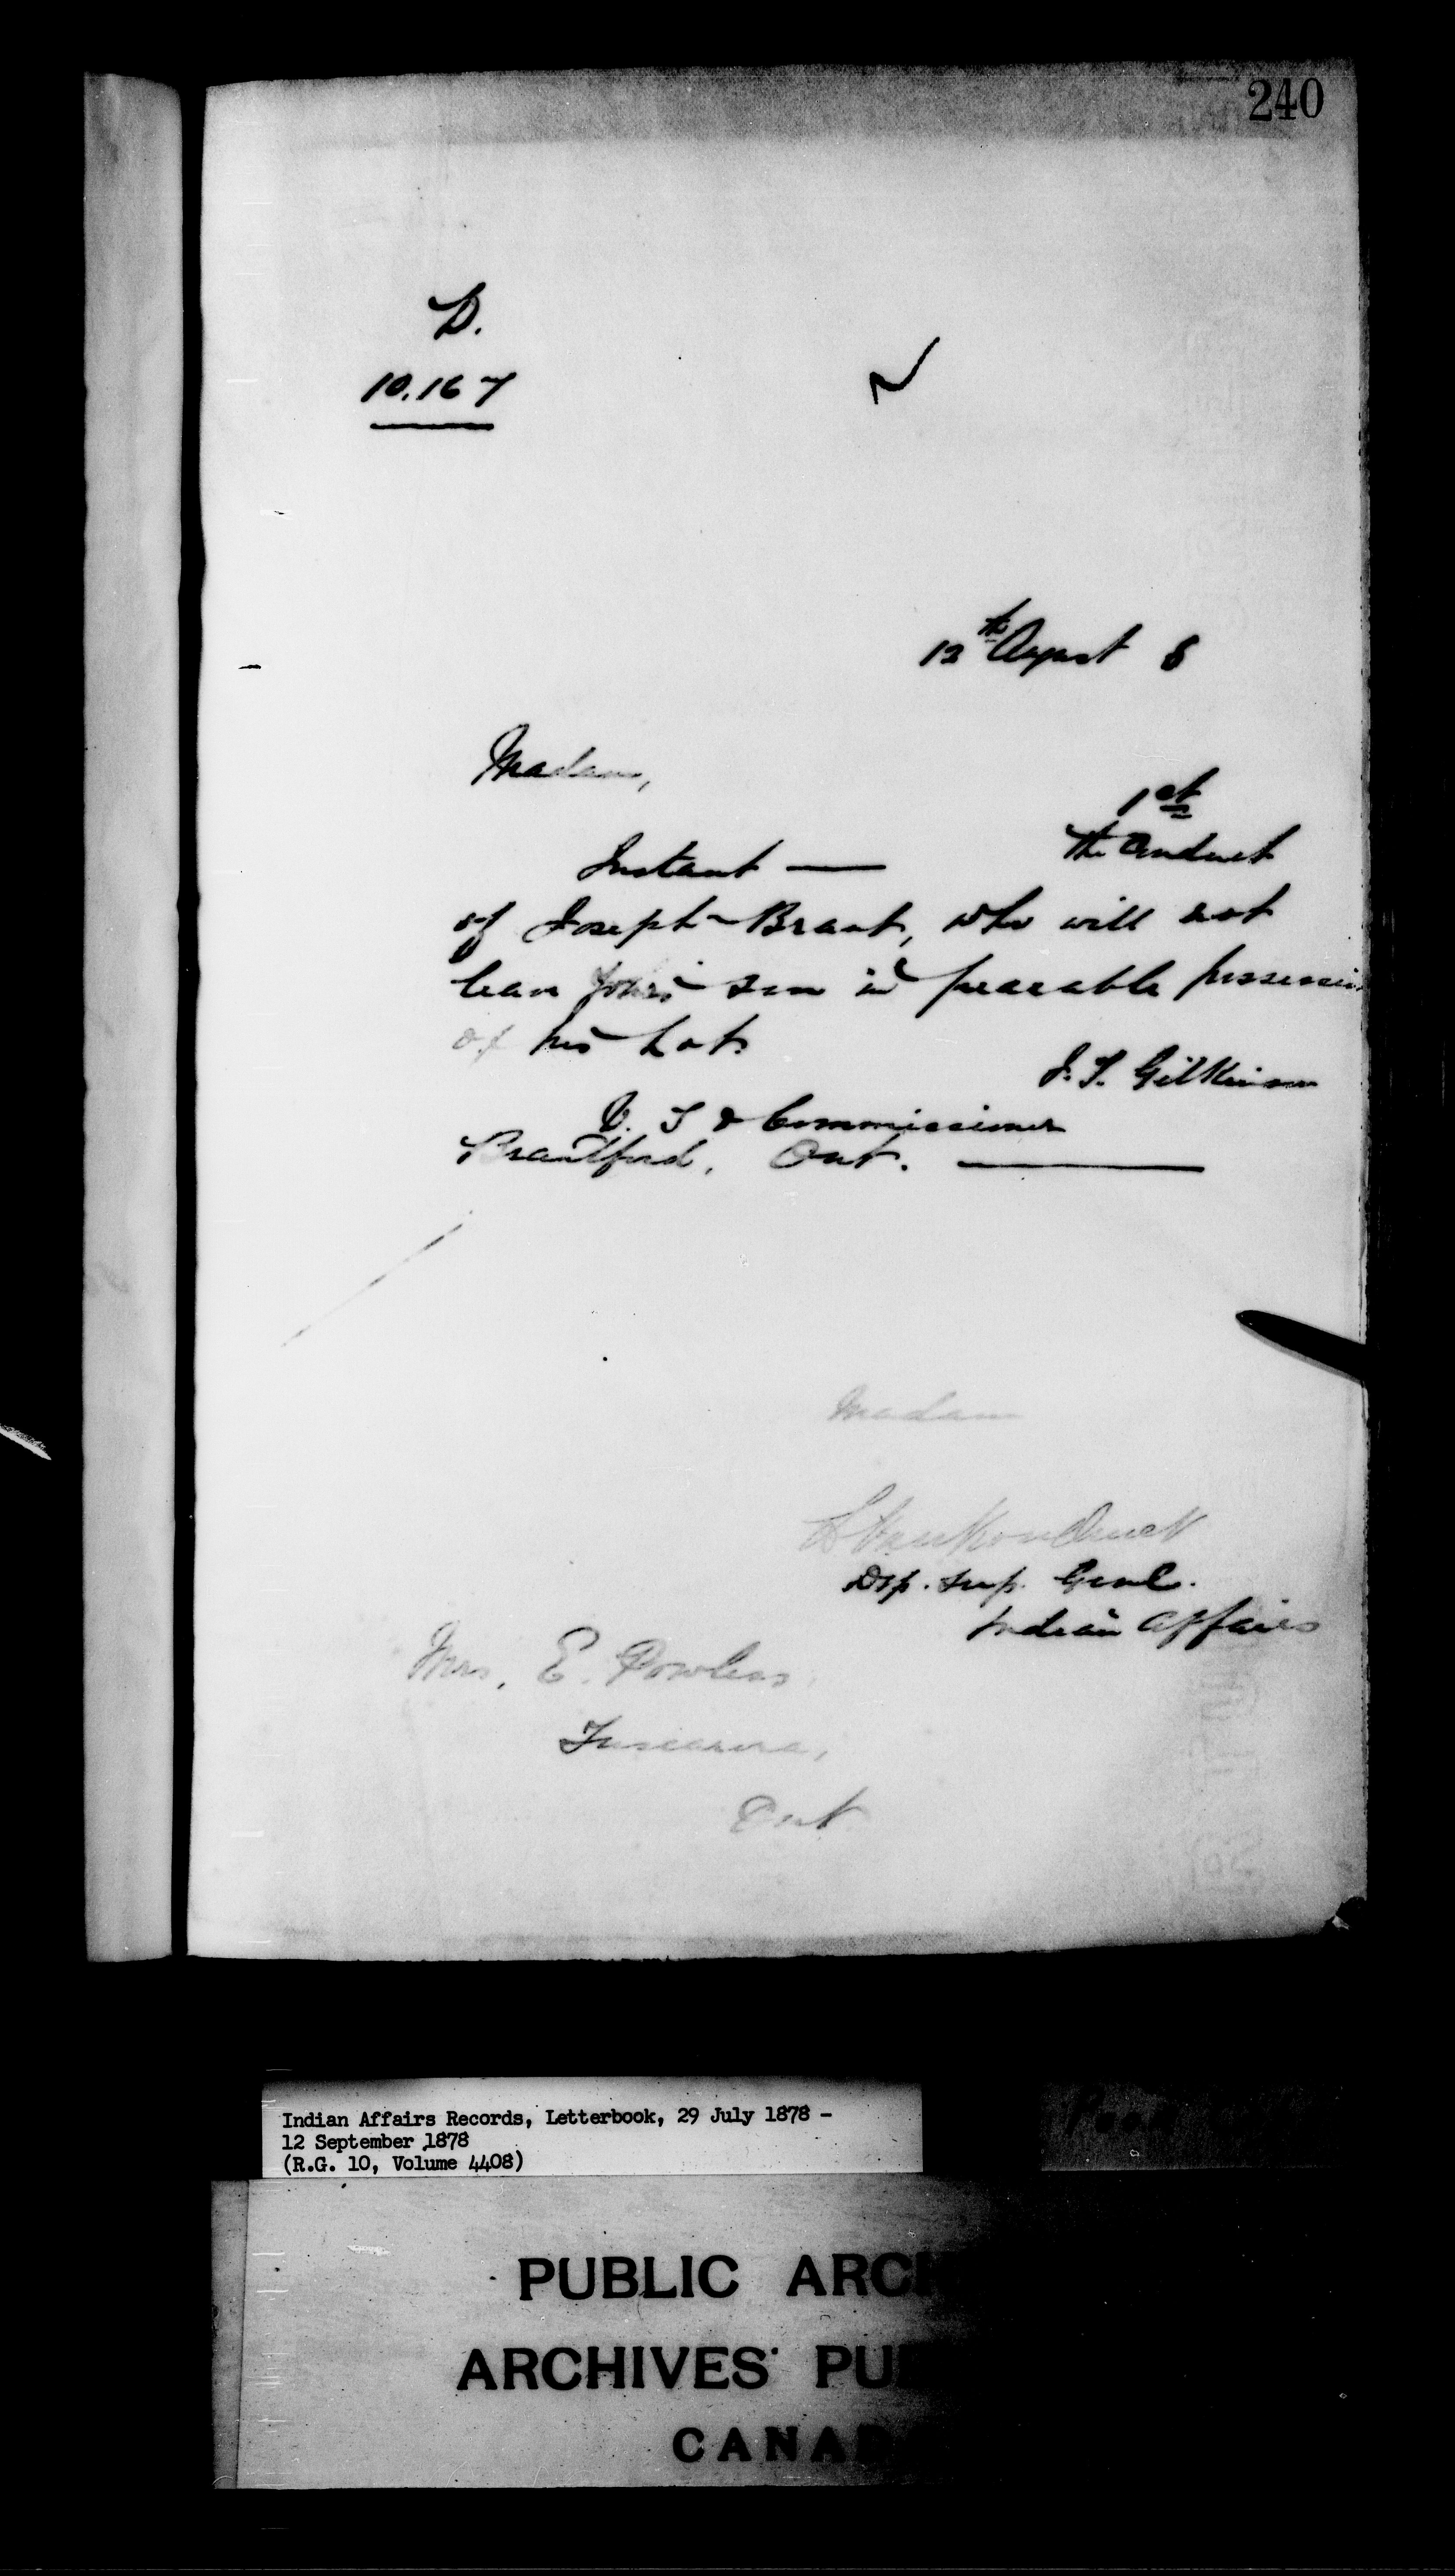 240
D.
10.167
12th August 8
Madam,
1st
Instant — the Conduct
of Joseph Brant, who will not
leave your son in peaceable possession
of his Lot.
J. T. Gilkison
V. S & Commissioner
Brantford, Ont.
Madam
L Vankoughnet
Dep. Sup. Genl.
Indian Affairs
Mrs. E. Powless
Tuscarora,
Ont
Indian Affairs Records, Letterbook, 29 July 1878 -
12 September 1878
(R.G. 10, Volume 4408)
PUBLIC ARCH
ARCHIVES PU
CANAD